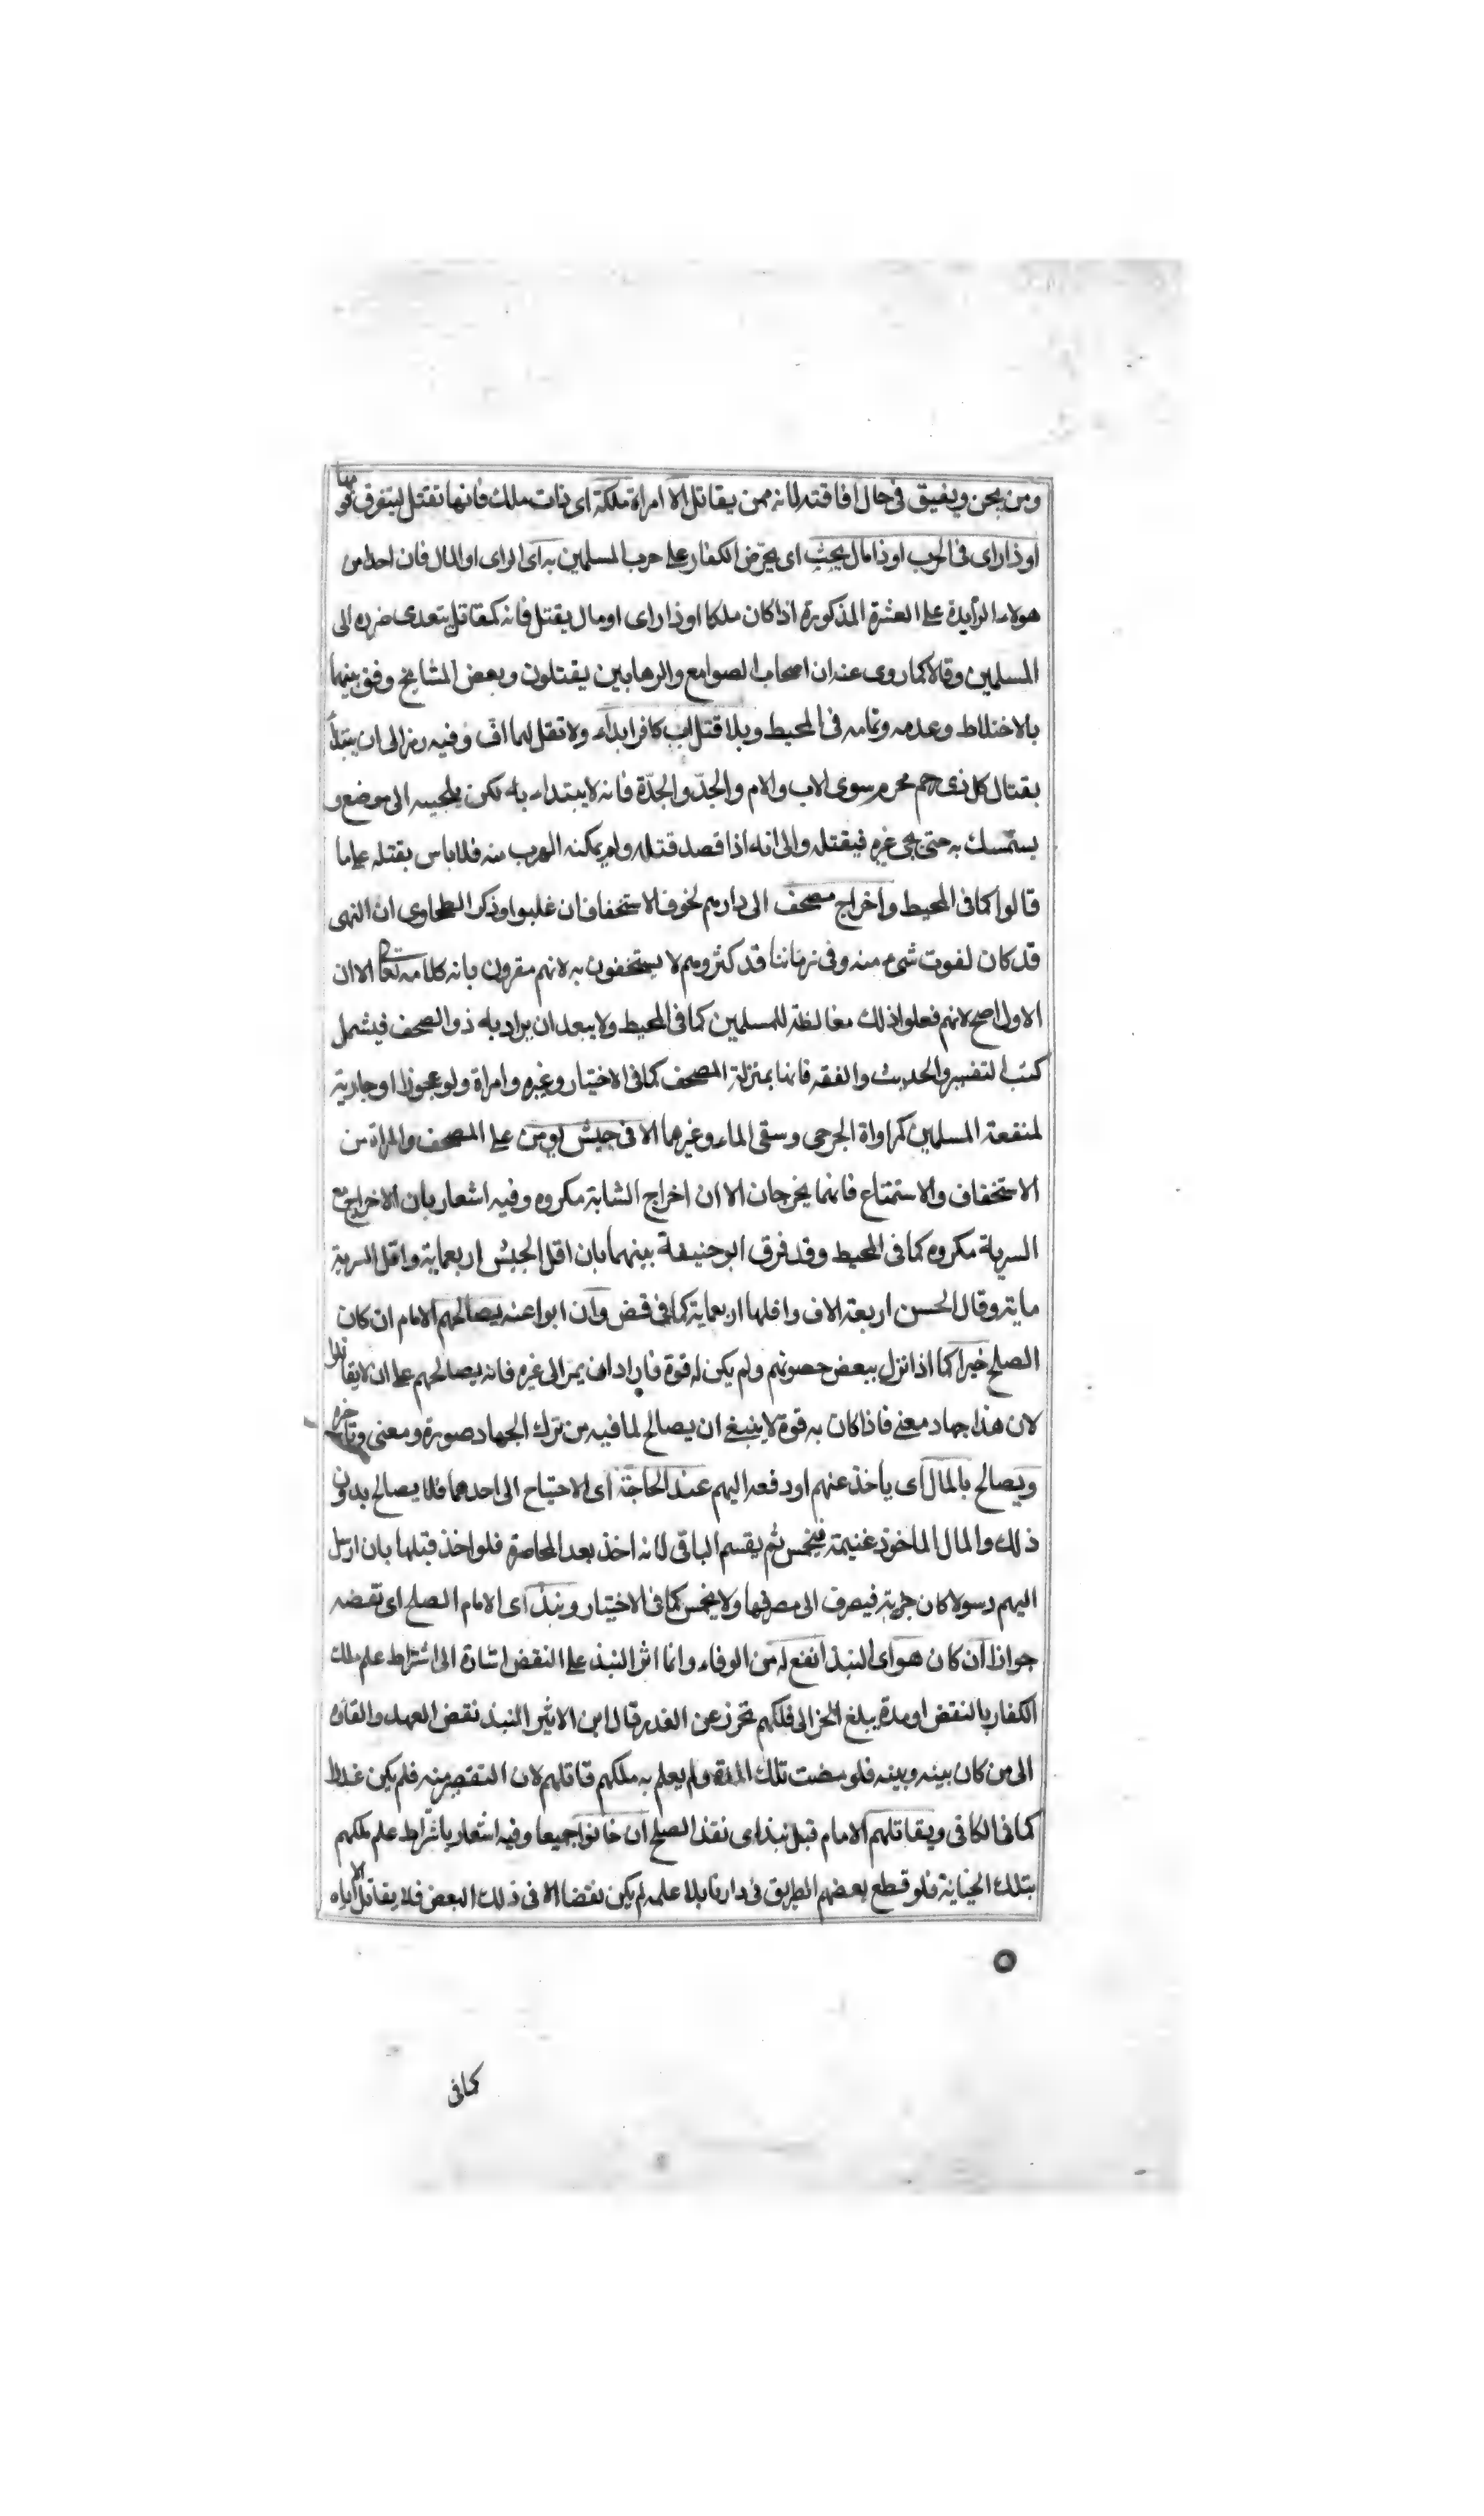 ومن يجن ويفيق فى حال افاقته لانه ممن يقاتل الا امراة ملكة اى ذات ملك فانها تقتل ليتفرق
او ذا راى فى الحرب او ذا مال يحث اى يحرّض الكفار على حرب المسلمين به اى الراى او المال فان احدا من
هولاء الزايدة على العشرة المذكورة اذا كان ملكا او ذا راى او مال يقتل فانه كمقاتل يتعدى ضرره الى
المسلمين وقالا كما روى عنه ان اصحاب الصوامع والرهابين يقتلون وبعض المشايخ وفق بينهما
بالاختلاط وعدمه وتمامه فى المحيط وبلا قتل اب كافر ابداء ولا تقل لهما افّ وفيه رمز الى ان يبتدأ
بقتال كل ذى رحم محرم سوى الاب والام والجدّ والجدّة فانه لا يبتداء به لكن يلجيه الى موضع و
يستمسك به حتى يجئ غيره فيقتله والى انه اذا قصد قتله ولم يمكنه الهرب منه فلا باس بقتله على ما
قالوا كما فى المحيط واخراج مصحف الى دارهم لخوف الاستخفاف ان غلبوا وذكر الطحاوى ان النهى
قد كان لفوت شئ منه وفى زماننا قد كثر وهم لا يستخفون به لانهم مقرون بانه كلامه تعالى الا ان
الاول اصح لانهم فعلوا ذلك مغالظة للمسلمين كما فى المحيط ولا يبعد ان يراد به ذو الصحف فيشمل
كتب التفسير والحديث والفقه فانها بمنزلة المصحف كما فى الاختيار وغيره وامراة ولو عجوزا او جارية
لمنفعة المسلمين كمداواة الجرحى وسقى الماء وغيرهما الا فى جيش يومن على المصحف والمراة من
الاستخفاف والاستمتاع فانهما يخرجان الا ان اخراج الشابة مكروه وفيه اشعار بان الاخراج مع
السرية مكروه كما فى المحيط وقد فرق ابو حنيفة بينهما بان اقل الجيش اربعماية واقل السرية
ماية وقال الحسن اربعة الاف واقلها اربعماية كما فى قض وان ابوا عنه يصالحهم الامام ان كان
الصلح خيرا كما اذا نزل ببعض حصونهم ولم يكن له قوة فاراد ان يمر الى غيره فانه يصالحهم على ان لا يقاتلوا
لان هذا جهاد معنى فاذا كان به قوة لا ينبغى ان يصالح لما فيه من ترك الجهاد صورة ومعنى وتاخيره
ويصالح بالمال اى ياخذ عنهم او دفعه اليهم عند الحاجة اى الاحتياج الى احدهما فلا يصالح بدون
ذلك والمال الماخوذ غنيمة فيخمس ثم يقسم الباقى لانه اخذ بعد المحاصرة فلو اخذ قبلها بان ارسل
اليهم رسولا كان جزية فيصرف الى مصرفها ولا يخمس كما فى الاختيار ونبذ اى الامام الصلح اى نقضه
جوازا ان كان هو اى النبذ انفع له من الوفاء وانما اثر النبذ على النقض اشارة الى اشتراط علم ملك
الكفار بالنقض او مدة يبلغ الخبر الى فلكهم تحرز عن الغدر قال ابن الاثير النبذ نقض العهد والقاه
الى من كان بينه وبينه فلو مضت تلك المدة ولم يعلم به ملكهم قاتلهم لان التقصير منه فلم يكن غدرا
كما فى الكافى ويقاتلهم الامام قبل نبذ اى نقذ الصلح ان خانوا جميعا وفيه اشعار باشتراط علم ملكهم
بتلك الخيانة فلو قطع بعضهم الطريق فى دارنا بلا علمه لم يكن نقضا الا فى ذلك البعض فلا يقاتل الا اياه
كما فى